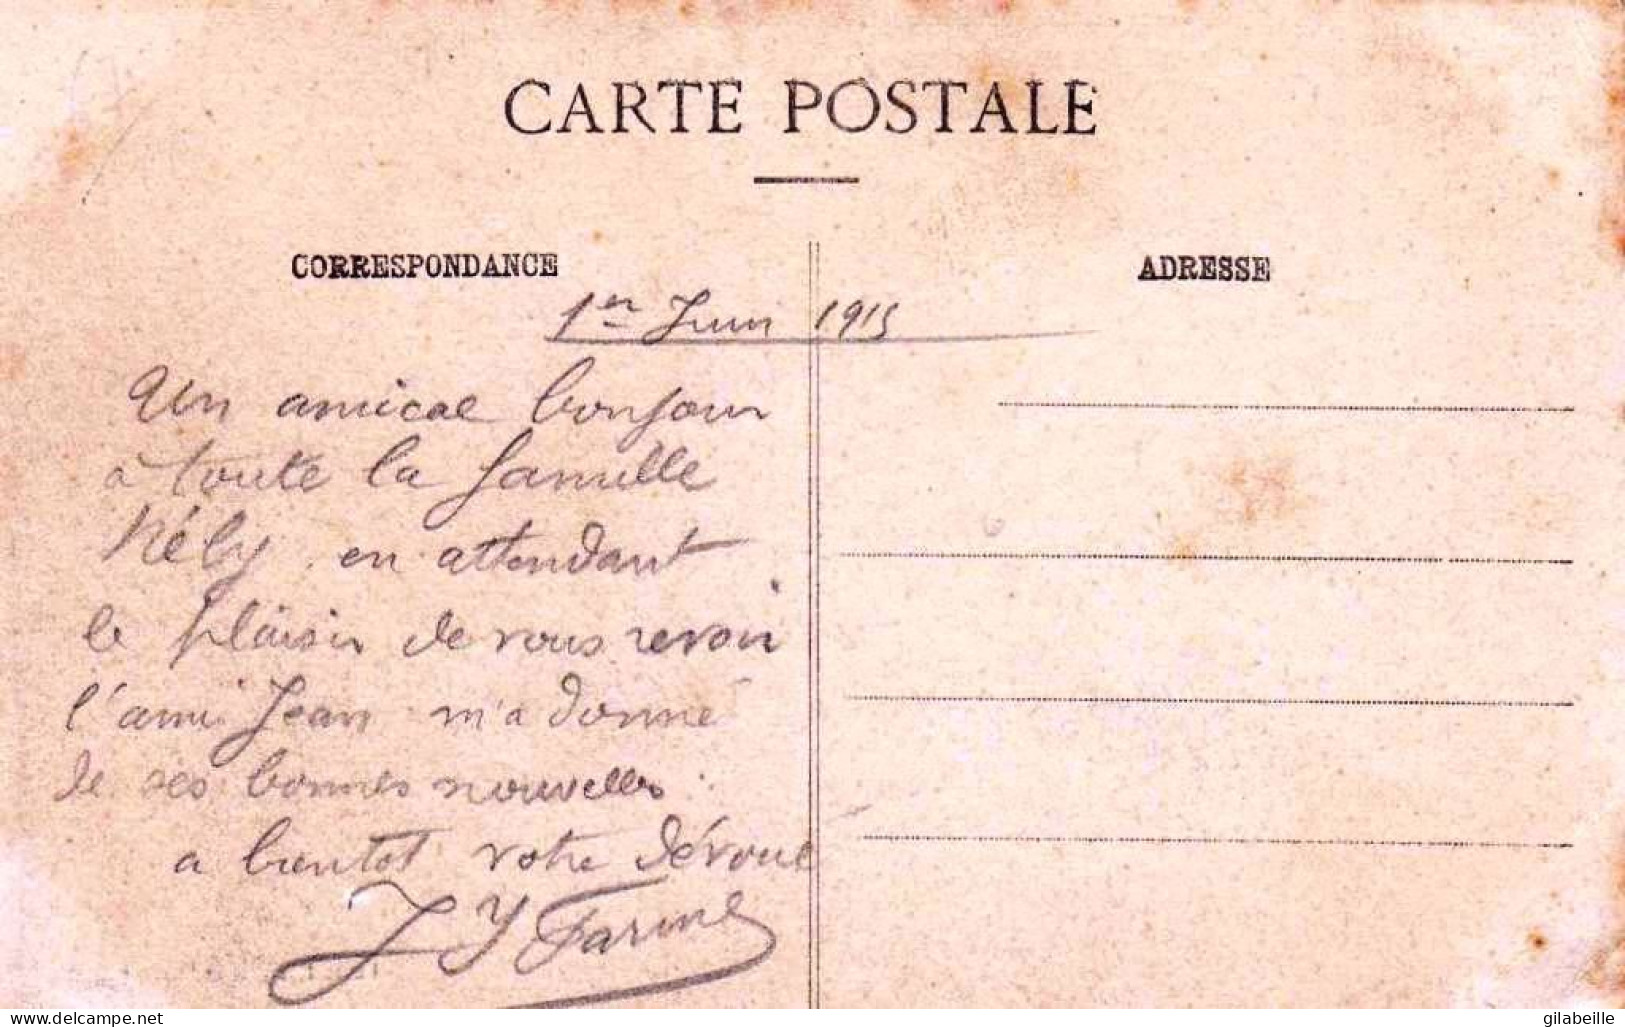 CARTE POSTALE
CORRESPONDANCE
ADRESSE
1er Juin 1915
Un amical bonjour
à toute la famille
Nély en attendant
le plaisir de vous revoir
l'ami Jean m'a donné
de ses bonnes nouvelles.
a bientot votre dévoué
JY Farine
www.delcampe.net
gilabeille